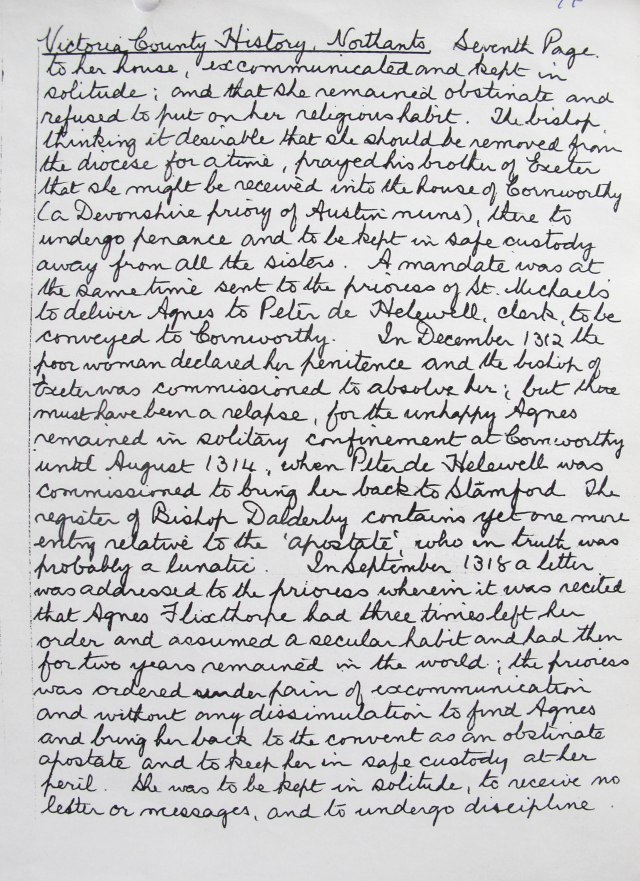 Victoria County History, Northants. Seventh Page.
to her house, excommunicated and kept in
solitude; and that she remained obstinate and
refused to put on her religious habit. The bishop,
thinking it desirable that she should be removed from
the diocese for a time, prayed his brother of Exeter
that she might be received into the house of Cornworthy
(a Devonshire priory of Austin nuns), there to
undergo penance and to be kept in safe custody
away from all the sisters. A mandate was at
the same time sent to the prioress of St. Michael's
to deliver Agnes to Peter de Helewell, clerk, to be
conveyed to Cornworthy. In December 1312 the
poor woman declared her penitence and the bishop of
Exeter was commissioned to absolve her; but there
must have been a relapse, for the unhappy Agnes
remained in solitary confinement at Cornworthy
until August 1314, when Peter de Helewell was
commissioned to bring her back to Stamford The
register of Bishop Dalderby contains yet one more
entry relative to the 'apostate', who in truth was
probably a lunatic. In September 1318 a letter
was addressed to the prioress wherein it was recited
that Agnes Flixthorpe had three times left her
order and assumed a secular habit and had then
for two years remained in the world; the prioress
was ordered under pain of excommunication
and without any dissimulation to find Agnes
and bring her back to the convent as an obstinate
apostate and to keep her in safe custody at her
peril. She was to be kept in solitude, to receive no
letter or messages, and to undergo discipline.